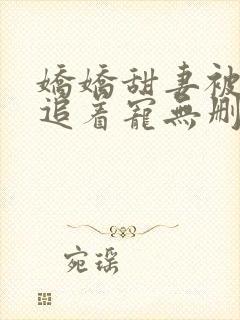 嬌嬌甜妻被
追着寵無刪
宛瑤